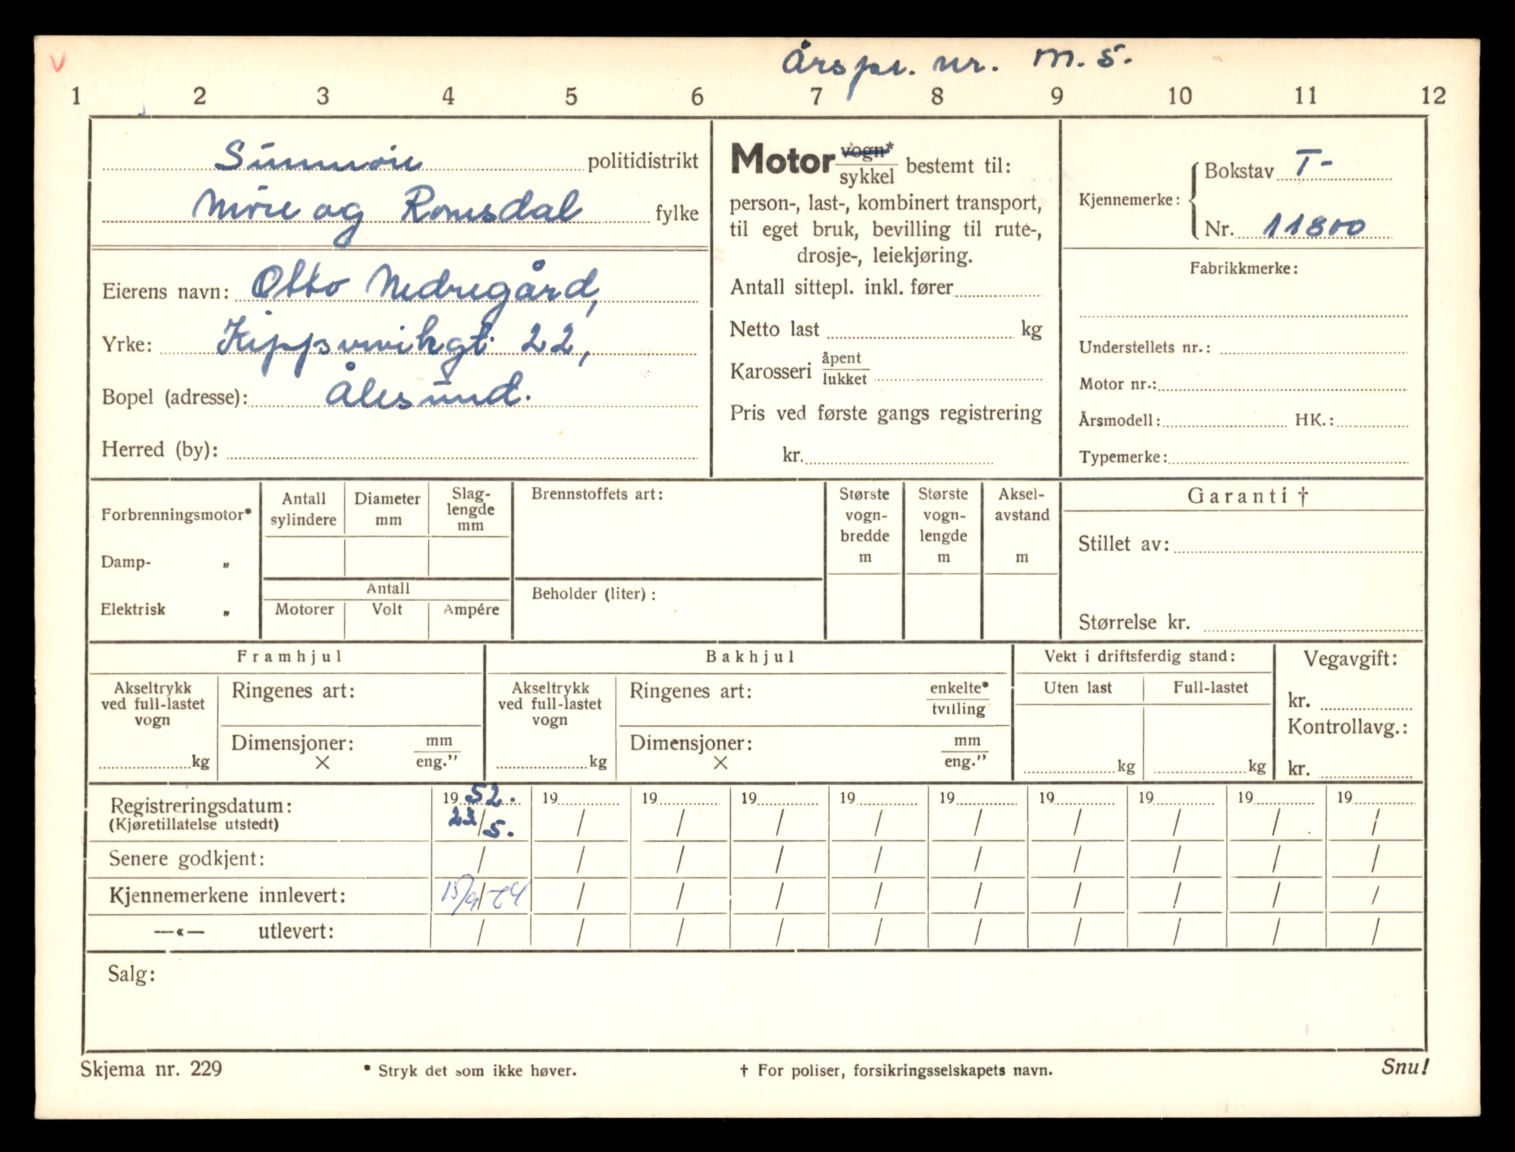 Årspr. nr. M. 5.
1 2 3 4 5 6 7 8 9 10 11 12
Sunnmøre politidistrikt
Møre og Romsdal fylke
Eierens navn: Otto Nedregård,
Yrke: Kippervikgt. 22,
Bopel (adresse): Ålesund.
Herred (by):
Motor vogn*/sykkel bestemt til:
person-, last-, kombinert transport,
til eget bruk, bevilling til rute-,
drosje-, leiekjøring.
Antall sittepl. inkl. fører
Netto last kg
Karosseri åpent/lukket
Pris ved første gangs registrering
kr.
Kjennemerke: Bokstav T-
Nr. 11800
Fabrikkmerke:
Understellets nr.:
Motor nr.:
Årsmodell: HK.:
Typemerke:
Forbrenningsmotor*
Damp- "
Elektrisk "
Antall sylindere
Diameter mm
Slag-
lengde
mm
Antall
Motorer Volt Ampére
Brennstoffets art:
Beholder (liter):
Største
vogn-
bredde
m
Største
vogn-
lengde
m
Aksel-
avstand
m
Garanti †
Stillet av:
Størrelse kr.
Framhjul
Akseltrykk
ved full-lastet
vogn
kg
Ringenes art:
Dimensjoner: mm
× eng."
Bakhjul
Akseltrykk
ved full-lastet
vogn
kg
Ringenes art: enkelte*/tvilling
Dimensjoner: mm
× eng."
Vekt i driftsferdig stand:
Uten last Full-lastet
kg kg
Vegavgift:
kr.
Kontrollavg.:
kr.
Registreringsdatum: 1952. 19 19 19 19 19 19 19 19 19
(Kjøretillatelse utstedt) 23/5. / / / / / / / / /
Senere godkjent: / / / / / / / / / /
Kjennemerkene innlevert: 15/9 / / / / / / / / /
—«— utlevert: / / / / / / / / / /
Salg:
Skjema nr. 229 * Stryk det som ikke høver. † For poliser, forsikringsselskapets navn. Snu!